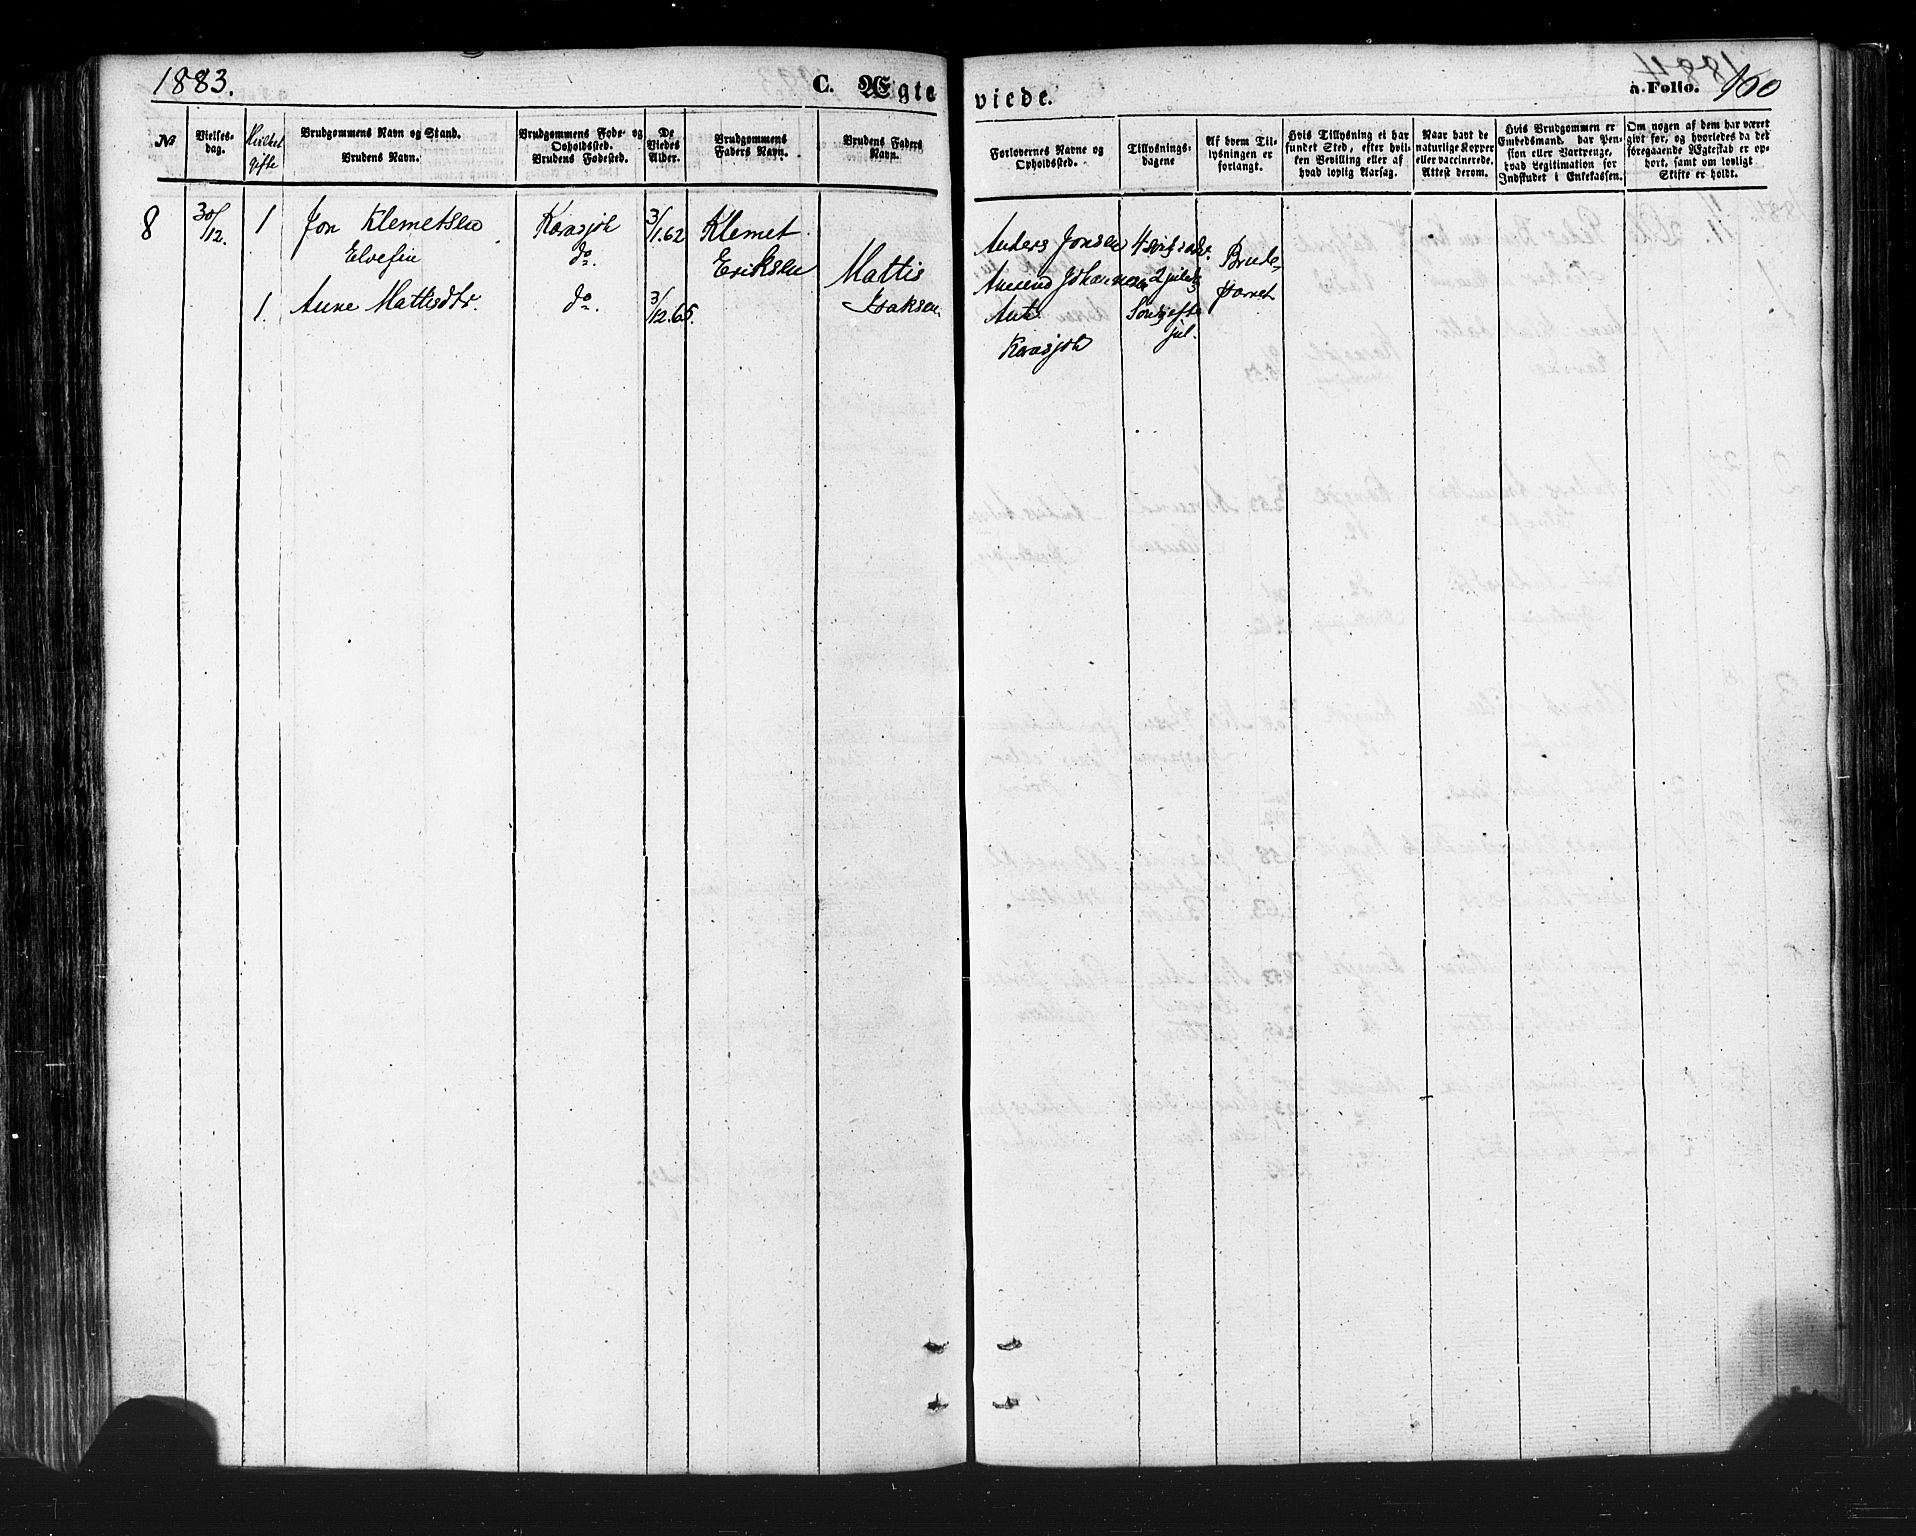 1883.
C. Ægte
viede.
à Folio. 160
№
Vielses-
dag.
Hvilket
gifte
Brudgommens Navn og Stand.
Brudens Navn.
Brudgommens Føde- og
Opholdssted.
Brudens Fødested.
De
Viedes
Alder.
Brudgommens
Faders Navn.
Brudens Faders
Navn.
Forlovernes Navne og
Opholdssted.
Tillysnings-
dagene
Af hvem Til-
lysningen er
forlangt.
Hvis Tillysning ei har
fundet Sted, efter hvil-
ken Bevilling eller af
hvad lovlig Aarsag.
Naar havt de
naturlige Kopper
eller vaccinerede.
Attest derom.
Hvis Brudgommen er
Embedsmand, har Pen-
sion eller Vartpenge,
hvad Legitimation for
Indskudet i Enkekassen.
Om nogen af dem har været
givt før, og hvorledes da det
foregaaende Ægteskab er op-
hørt, samt om lovligt
Skifte er holdt.
8
30/12.
1
Jon Klemetsen
Elvefin
Karasjok
do.
3/1.62
Klemet
Eriksen
1.
Anne Mattisdtr.
do.
3/12.65.
Mattis
Isaksen.
Anders Jonsen
Amund Johannesen
Karasjok
4 søndg i adv.
2 juled
Søndg efter
jul.
Brude-
parret